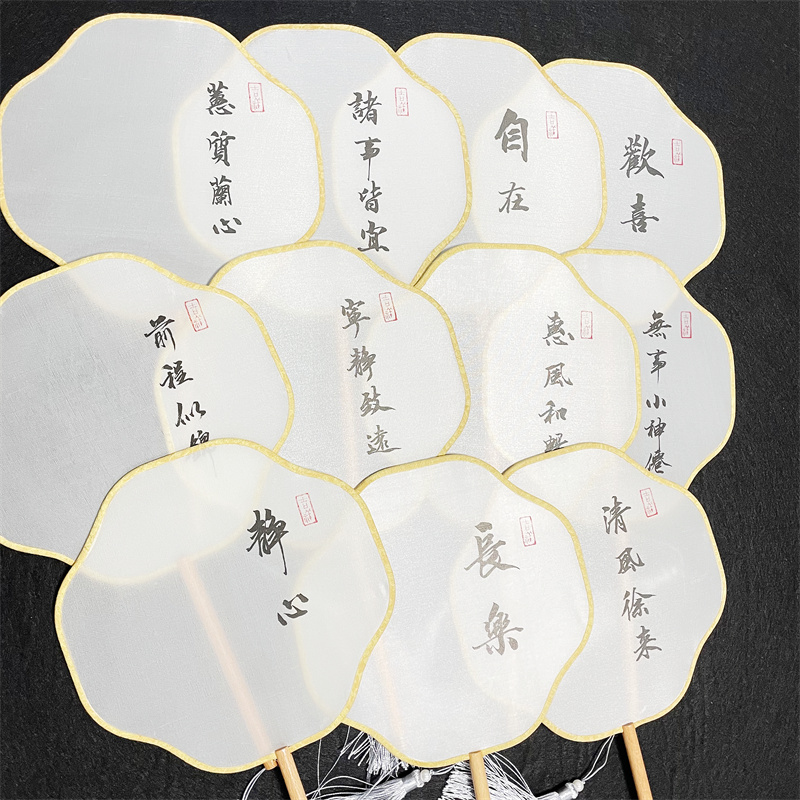 蕙質蘭心
諸事皆宜
自在
歡喜
前程似
寧静致遠
惠風和暢
無事小神僊
静心
長樂
清風徐来